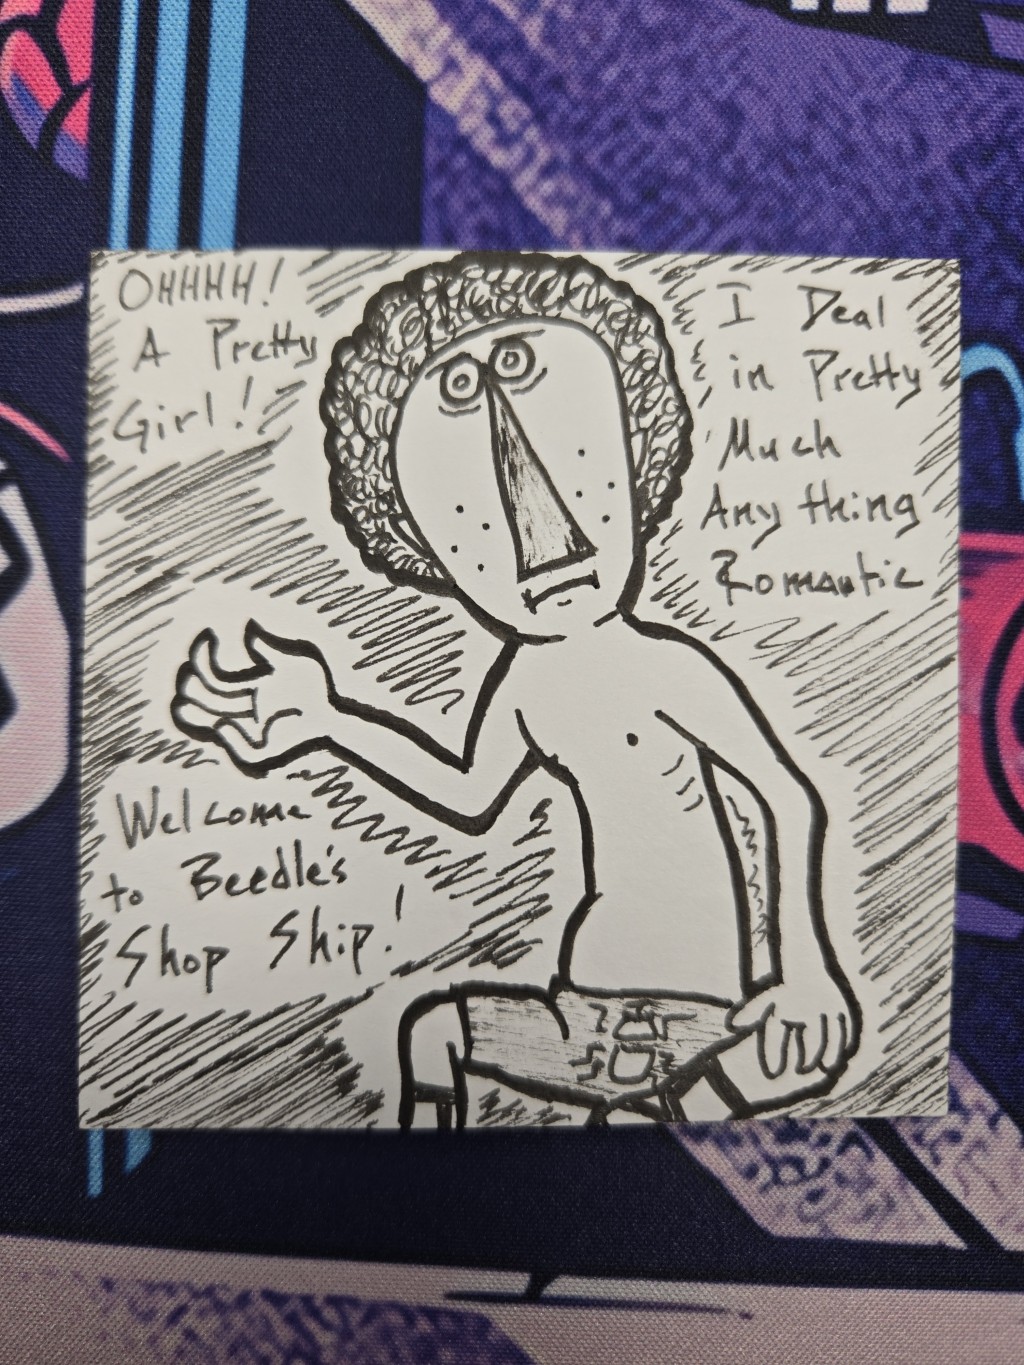 OHHHH!
A Pretty
Girl!
I Deal
in Pretty
Much
Any thing
Romantic
Welcome
to Beedle's
Shop Ship!